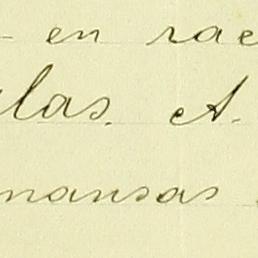 - en rac
las. A.
mansas